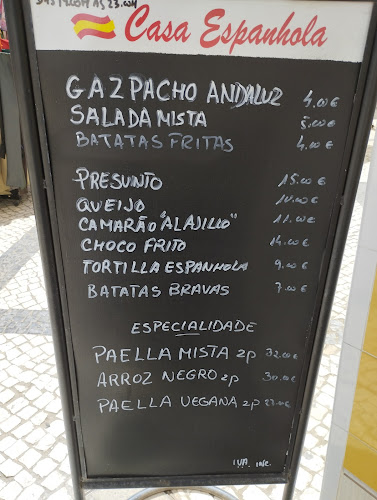 Casa Espanhola
GAZPACHO ANDALUZ 4.00€
SALADA MISTA 5.00€
BATATAS FRITAS 4.00€
PRESUNTO 15.00€
QUEIJO 10.00€
CAMARÃO "ALAJILLO" 11.00€
CHOCO FRITO 14.00€
TORTILLA ESPANHOLA 9.00€
BATATAS BRAVAS 7.00€
ESPECIALIDADE
PAELLA MISTA 2P 32.00€
ARROZ NEGRO 2P 30.00€
PAELLA VEGANA 2P
IVA. inc.